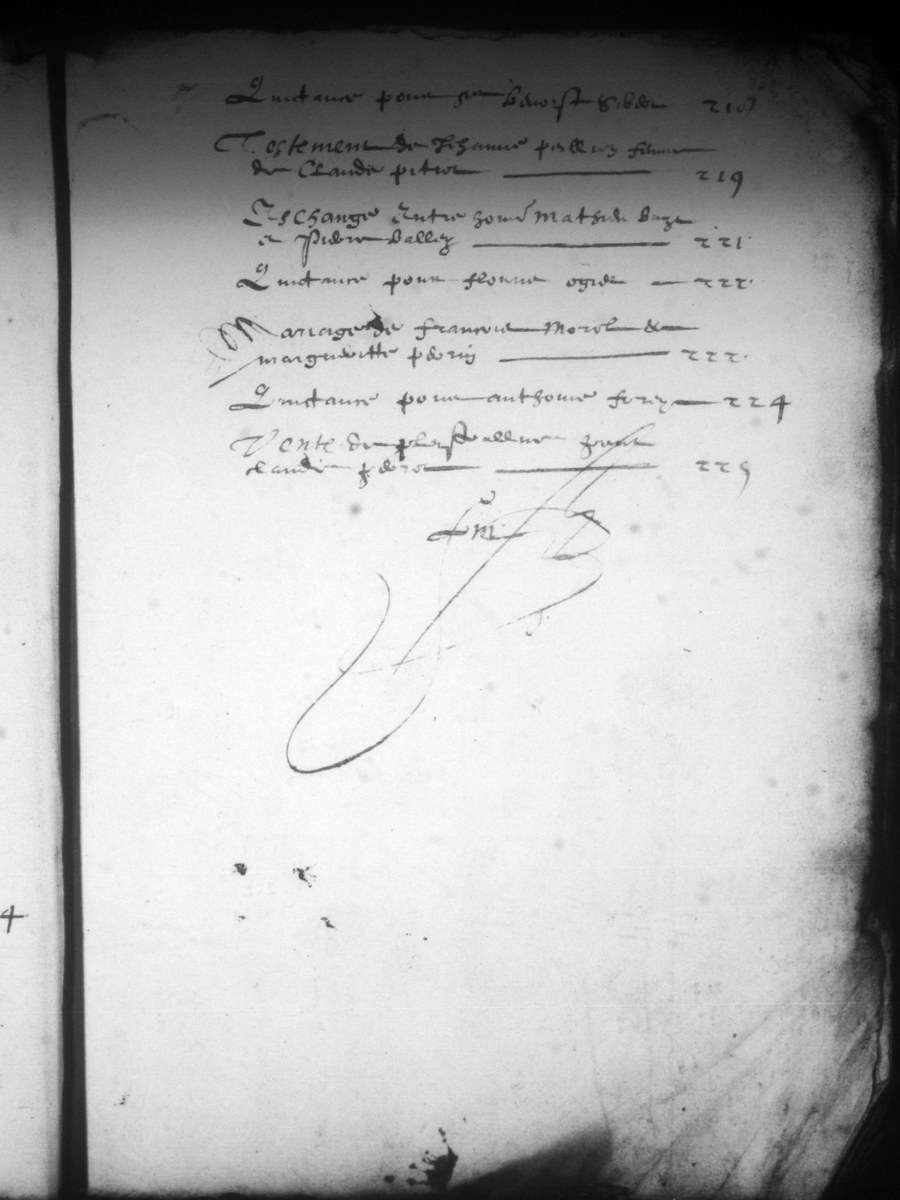 Quictance pour benoist 218
Testement de Jehanne femme
de Claude pitiot 219
Eschange Entre honn Mathieu
et pierre ballez 221
Quictance pour ogier 222
Mariage de francoie Morel &
margueritte perrin 222
Quictance pour anthoine forez 224
Vente de pour
claude 225
Fin
4